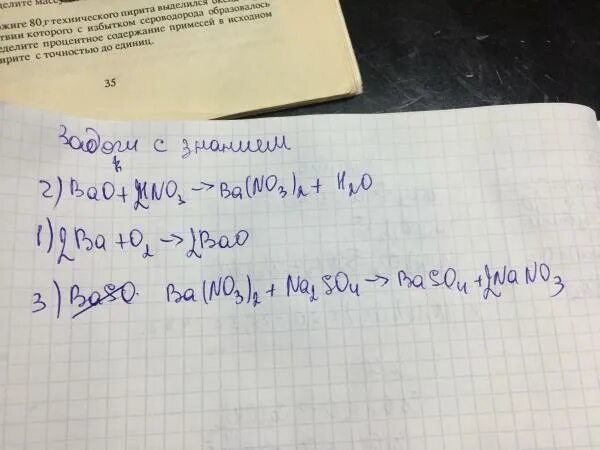 делите массу
жиге 80 г технического пирита выделился оксид
ствии которого с избытком сероводорода образовалось
еделите процентное содержание примесей в исходном
ирите с точностью до единиц.
35
Задоги с знанием
2) BaO + 2HNO3 → Ba(NO3)2 + H2O
1) 2Ba + O2 → 2BaO
3) BaSO. Ba(NO3)2 + Na2SO4 → BaSO4 + 2NaNO3